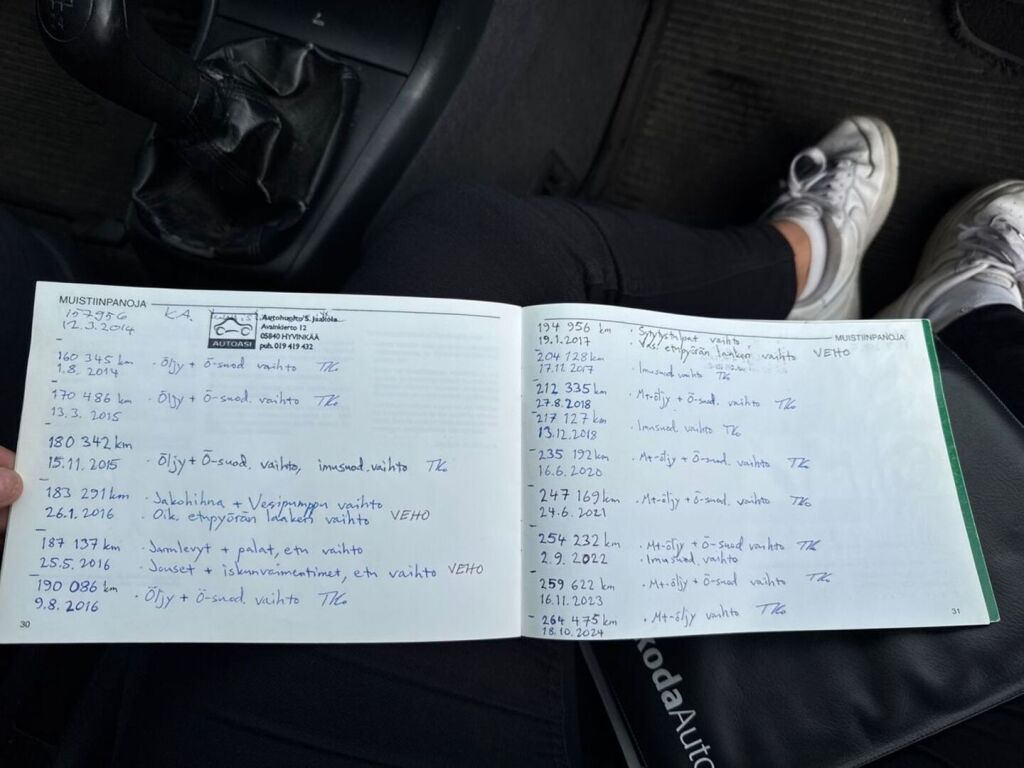 MUISTIINPANOJA
157956
12.3.2014
K.A.
Avainkierto 12
05840 HYVINKÄÄ
puh. 019 419 432
AUTOASI
160 345 km
1.8.2014
· Öljy + Ö-suod vaihto TK
170 486 km
13.3.2015
· Öljy + Ö-suod. vaihto TK
180 342 km
15.11.2015
· Öljy + Ö-suod. vaihto, imusuod.vaihto TK
183 291 km
26.1.2016
· Jakohihna + Vesipumppu vaihto
· Oik. etupyörän laakeri vaihto VEHO
187 137 km
25.5.2016
· Jarrulevyt + palat, etu vaihto
· Jouset + iskunvaimentimet, etu vaihto VEHO
190 086 km
9.8.2016
· Öljy + Ö-suod. vaihto TK
30
MUISTIINPANOJA
194 956 km
19.1.2017
· Sytytystulpat vaihto
· Vas. etupyörän laakeri vaihto VEHO
204 128 km
17.11.2017
· Imusuod vaihto TK
212 335 km
27.8.2018
· Mt-öljy + Ö-suod. vaihto TK
217 127 km
13.12.2018
· Imusuod. vaihto TK
235 192 km
16.6.2020
· Mt-öljy + Ö-suod. vaihto TK
247 169 km
24.6.2021
· Mt-öljy + ö-suod. vaihto TK
254 232 km
2.9.2022
· Mt-öljy + Ö-suod vaihto TK
· Imusuod. vaihto
259 622 km
16.11.2023
· Mt-öljy + ö-suod vaihto TK
264 475 km
18.10.2024
· Mt-öljy vaihto TK
31
kodaAuto